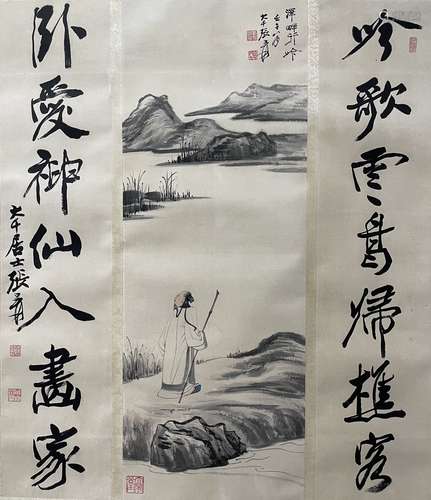 吟歌雲鳥歸樵谷
澤畔行吟
壬午八月
大千張爰
臥愛神仙入畫家
大千居士張爰